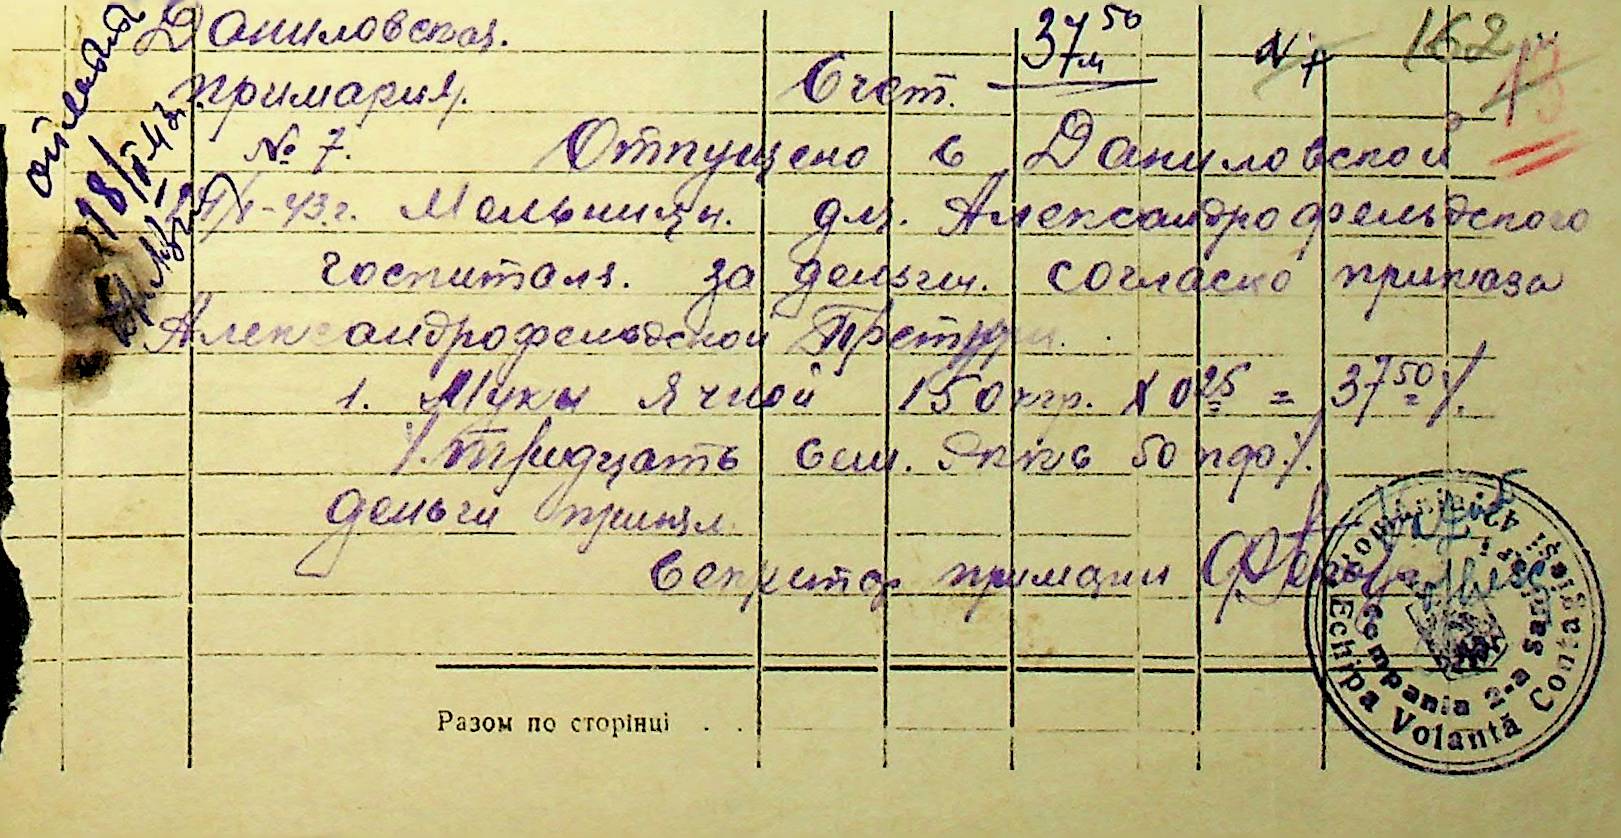 Даниловская.
37 50 м
№ 7
152
13
примария.
Счет.
№ 7.
Отпущено в Даниловской
-43г. Мельницы. для. Александрофельдского
госпиталя. за деньги. согласно приказа
Александрофельдской Претуры.
1. Муки Ячной 150 кгр. х 0 25 = 37 50 /.
/. тридцать сем. Янкв 50 пфо /.
деньги принял
Секритар примарии
Разом по сторінці . .
Echipa Volantă Contagieși
Compania 2-a Sanitară